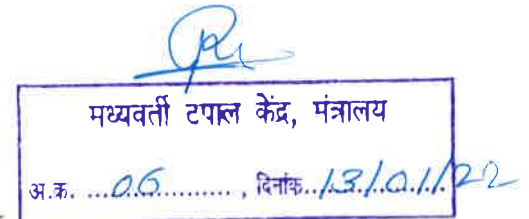 मध्यवर्ती टपाल केंद्र, मंत्रालय
अ.क्र. ....06.........., दिनांक..13/01/22